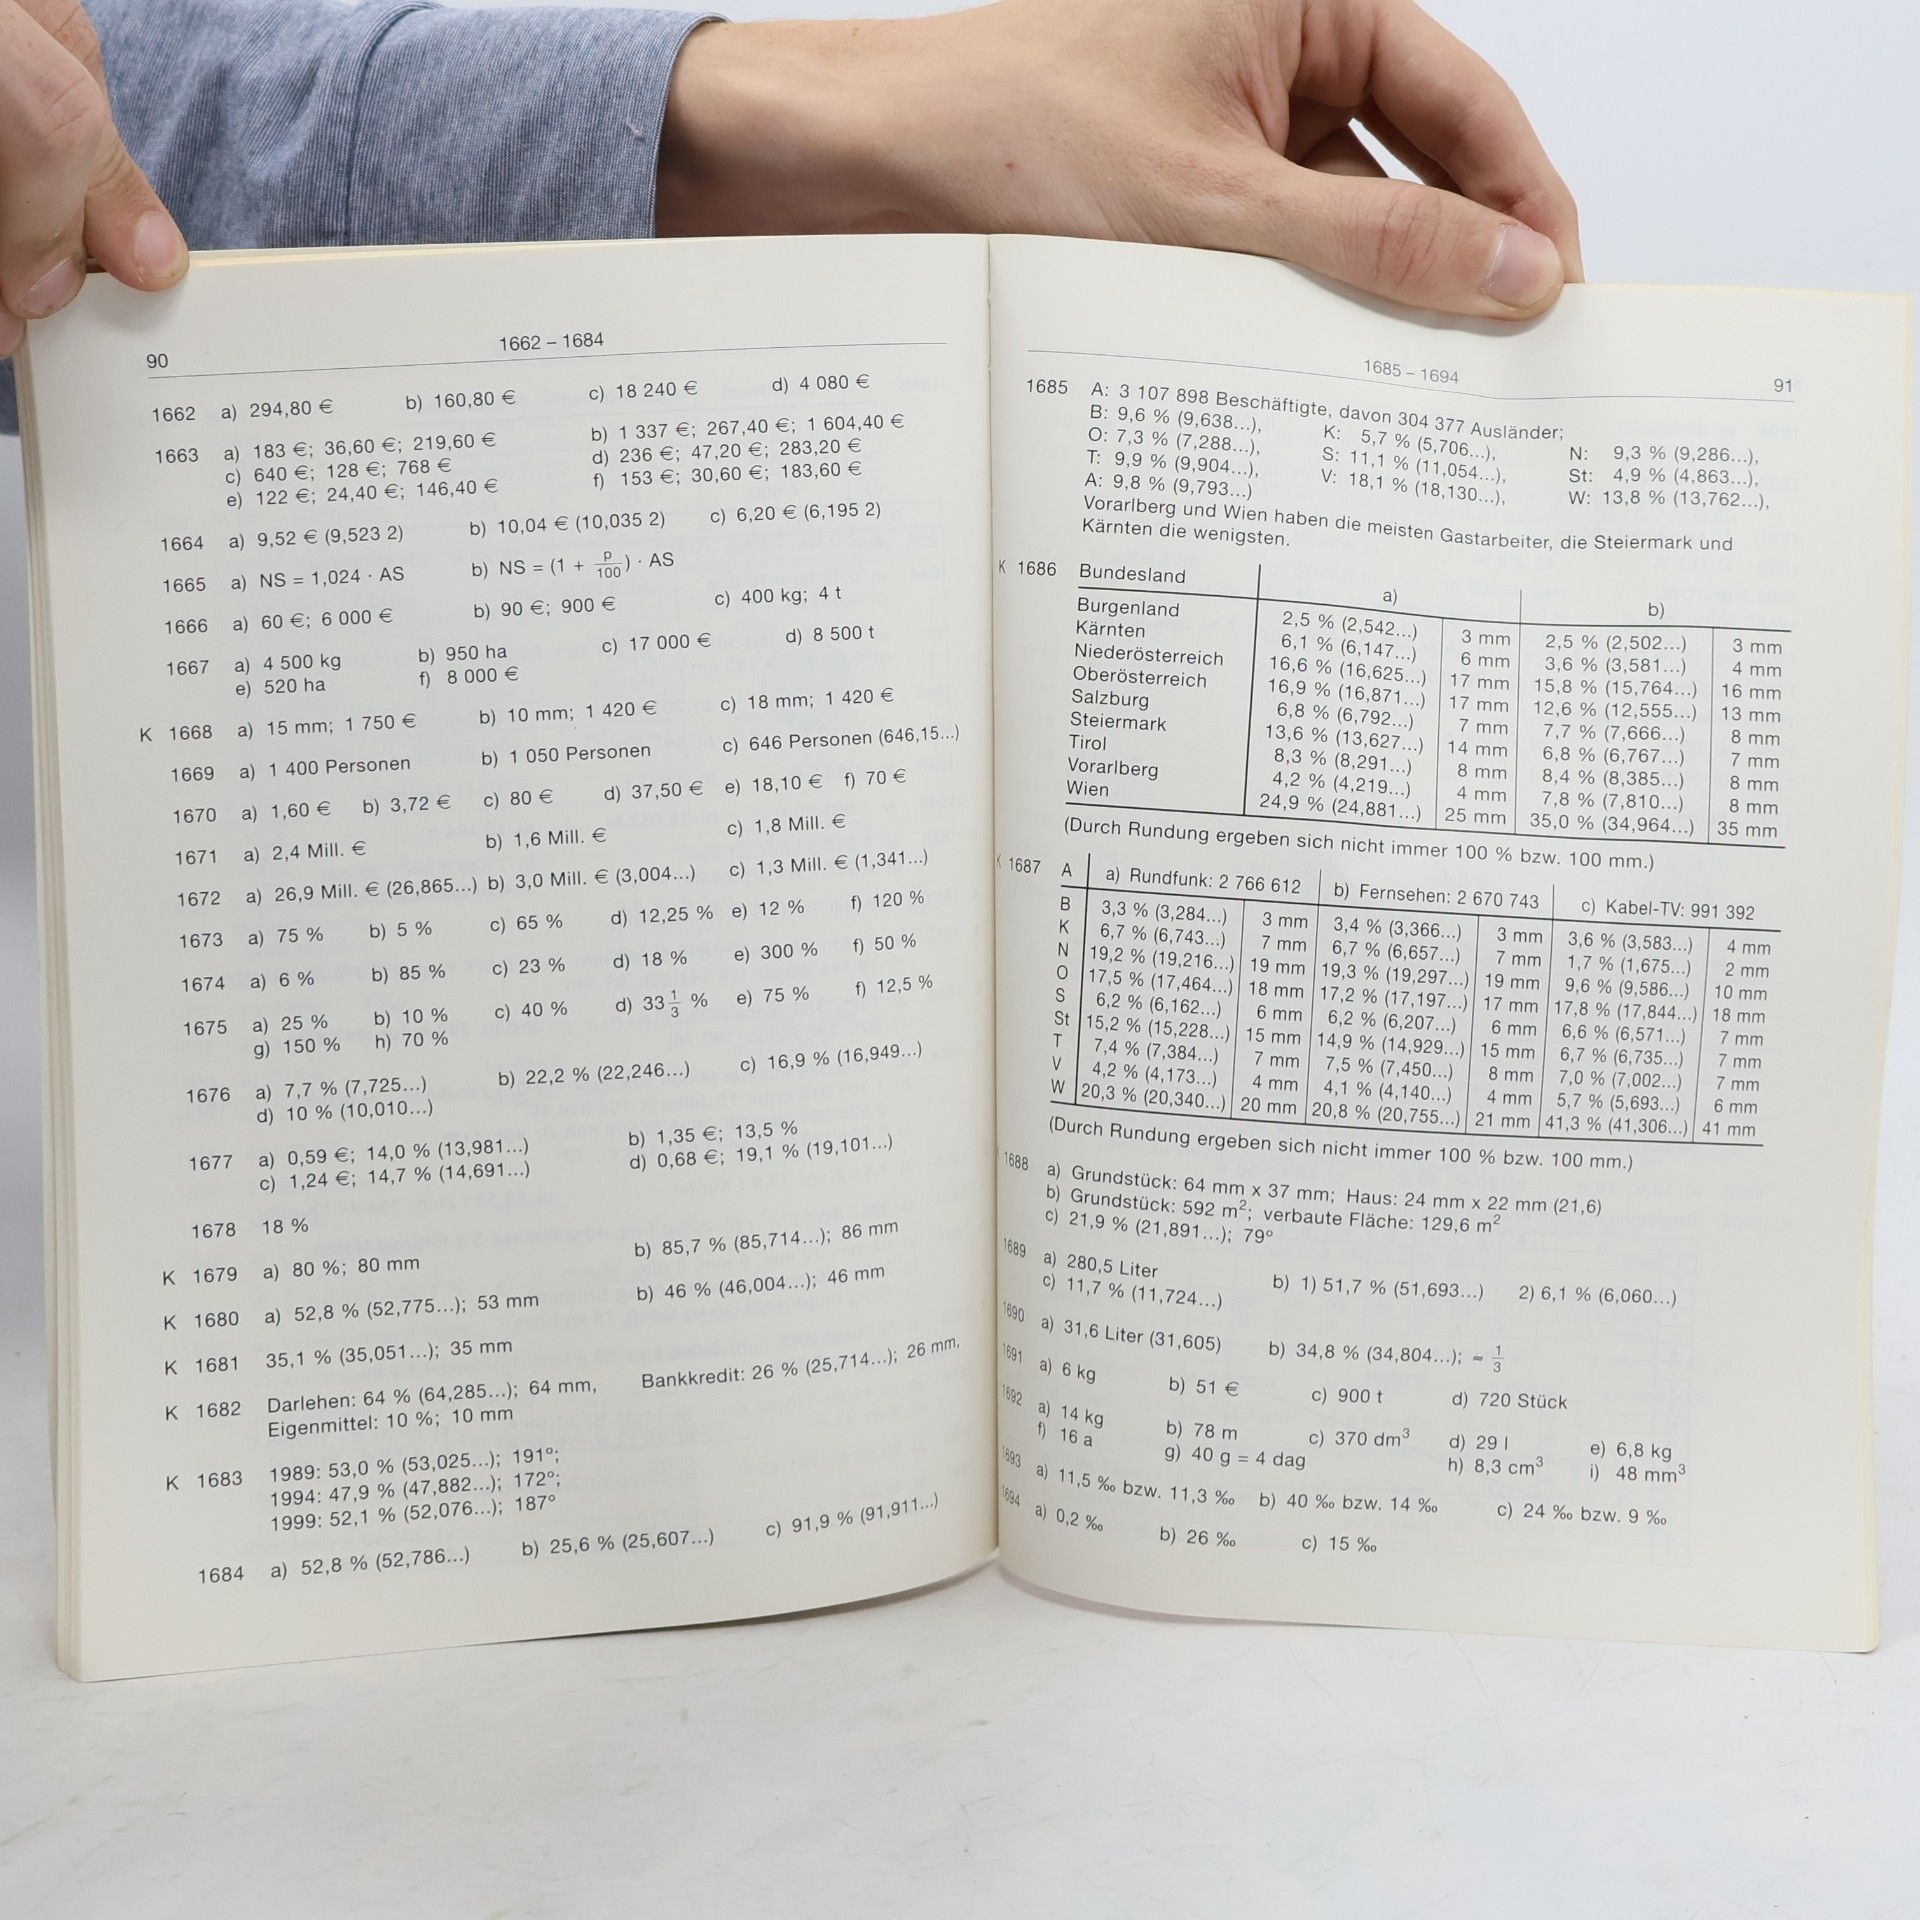 90
1662 – 1684
1662 a) 294,80 € b) 160,80 € c) 18 240 € d) 4 080 €
1663 a) 183 €; 36,60 €; 219,60 € b) 1 337 €; 267,40 €; 1 604,40 €
c) 640 €; 128 €; 768 € d) 236 €; 47,20 €; 283,20 €
e) 122 €; 24,40 €; 146,40 € f) 153 €; 30,60 €; 183,60 €
1664 a) 9,52 € (9,523 2) b) 10,04 € (10,035 2) c) 6,20 € (6,195 2)
1665 a) NS = 1,024 · AS b) NS = (1 + p/100) · AS
1666 a) 60 €; 6 000 € b) 90 €; 900 € c) 400 kg; 4 t
1667 a) 4 500 kg b) 950 ha c) 17 000 € d) 8 500 t
e) 520 ha f) 8 000 €
K 1668 a) 15 mm; 1 750 € b) 10 mm; 1 420 € c) 18 mm; 1 420 €
1669 a) 1 400 Personen b) 1 050 Personen c) 646 Personen (646,15...)
1670 a) 1,60 € b) 3,72 € c) 80 € d) 37,50 € e) 18,10 € f) 70 €
1671 a) 2,4 Mill. € b) 1,6 Mill. € c) 1,8 Mill. €
1672 a) 26,9 Mill. € (26,865...) b) 3,0 Mill. € (3,004...) c) 1,3 Mill. € (1,341...)
1673 a) 75 % b) 5 % c) 65 % d) 12,25 % e) 12 % f) 120 %
1674 a) 6 % b) 85 % c) 23 % d) 18 % e) 300 % f) 50 %
1675 a) 25 % b) 10 % c) 40 % d) 33 1/3 % e) 75 % f) 12,5 %
g) 150 % h) 70 %
1676 a) 7,7 % (7,725...) b) 22,2 % (22,246...) c) 16,9 % (16,949...)
d) 10 % (10,010...)
1677 a) 0,59 €; 14,0 % (13,981...) b) 1,35 €; 13,5 %
c) 1,24 €; 14,7 % (14,691...) d) 0,68 €; 19,1 % (19,101...)
1678 18 %
K 1679 a) 80 %; 80 mm b) 85,7 % (85,714...); 86 mm
K 1680 a) 52,8 % (52,775...); 53 mm b) 46 % (46,004...); 46 mm
K 1681 35,1 % (35,051...); 35 mm
K 1682 Darlehen: 64 % (64,285...); 64 mm, Bankkredit: 26 % (25,714...); 26 mm,
Eigenmittel: 10 %; 10 mm
K 1683 1989: 53,0 % (53,025...); 191°;
1994: 47,9 % (47,882...); 172°;
1999: 52,1 % (52,076...); 187°
1684 a) 52,8 % (52,786...) b) 25,6 % (25,607...) c) 91,9 % (91,911...)
1685 – 1694
91
1685 A: 3 107 898 Beschäftigte, davon 304 377 Ausländer;
B: 9,6 % (9,638...), K: 5,7 % (5,706...), N: 9,3 % (9,286...),
O: 7,3 % (7,288...), S: 11,1 % (11,054...), St: 4,9 % (4,863...),
T: 9,9 % (9,904...), V: 18,1 % (18,130...), W: 13,8 % (13,762...),
A: 9,8 % (9,793...)
Vorarlberg und Wien haben die meisten Gastarbeiter, die Steiermark und
Kärnten die wenigsten.
K 1686 Bundesland a) b)
Burgenland 2,5 % (2,542...) 3 mm 2,5 % (2,502...) 3 mm
Kärnten 6,1 % (6,147...) 6 mm 3,6 % (3,581...) 4 mm
Niederösterreich 16,6 % (16,625...) 17 mm 15,8 % (15,764...) 16 mm
Oberösterreich 16,9 % (16,871...) 17 mm 12,6 % (12,555...) 13 mm
Salzburg 6,8 % (6,792...) 7 mm 7,7 % (7,666...) 8 mm
Steiermark 13,6 % (13,627...) 14 mm 6,8 % (6,767...) 7 mm
Tirol 8,3 % (8,291...) 8 mm 8,4 % (8,385...) 8 mm
Vorarlberg 4,2 % (4,219...) 4 mm 7,8 % (7,810...) 8 mm
Wien 24,9 % (24,881...) 25 mm 35,0 % (34,964...) 35 mm
(Durch Rundung ergeben sich nicht immer 100 % bzw. 100 mm.)
K 1687 A a) Rundfunk: 2 766 612 b) Fernsehen: 2 670 743 c) Kabel-TV: 991 392
B 3,3 % (3,284...) 3 mm 3,4 % (3,366...) 3 mm 3,6 % (3,583...) 4 mm
K 6,7 % (6,743...) 7 mm 6,7 % (6,657...) 7 mm 1,7 % (1,675...) 2 mm
N 19,2 % (19,216...) 19 mm 19,3 % (19,297...) 19 mm 9,6 % (9,586...) 10 mm
O 17,5 % (17,464...) 18 mm 17,2 % (17,197...) 17 mm 17,8 % (17,844...) 18 mm
S 6,2 % (6,162...) 6 mm 6,2 % (6,207...) 6 mm 6,6 % (6,571...) 7 mm
St 15,2 % (15,228...) 15 mm 14,9 % (14,929...) 15 mm 6,7 % (6,735...) 7 mm
T 7,4 % (7,384...) 7 mm 7,5 % (7,450...) 8 mm 7,0 % (7,002...) 7 mm
V 4,2 % (4,173...) 4 mm 4,1 % (4,140...) 4 mm 5,7 % (5,693...) 6 mm
W 20,3 % (20,340...) 20 mm 20,8 % (20,755...) 21 mm 41,3 % (41,306...) 41 mm
(Durch Rundung ergeben sich nicht immer 100 % bzw. 100 mm.)
1688 a) Grundstück: 64 mm x 37 mm; Haus: 24 mm x 22 mm (21,6)
b) Grundstück: 592 m²; verbaute Fläche: 129,6 m²
c) 21,9 % (21,891...); 79°
1689 a) 280,5 Liter b) 1) 51,7 % (51,693...) 2) 6,1 % (6,060...)
c) 11,7 % (11,724...)
1690 a) 31,6 Liter (31,605) b) 34,8 % (34,804...); ≈ 1/3
1691 a) 6 kg b) 51 € c) 900 t d) 720 Stück
1692 a) 14 kg b) 78 m c) 370 dm³ d) 29 l e) 6,8 kg
f) 16 a g) 40 g = 4 dag h) 8,3 cm³ i) 48 mm³
1693 a) 11,5 ‰ bzw. 11,3 ‰ b) 40 ‰ bzw. 14 ‰ c) 24 ‰ bzw. 9 ‰
1694 a) 0,2 ‰ b) 26 ‰ c) 15 ‰